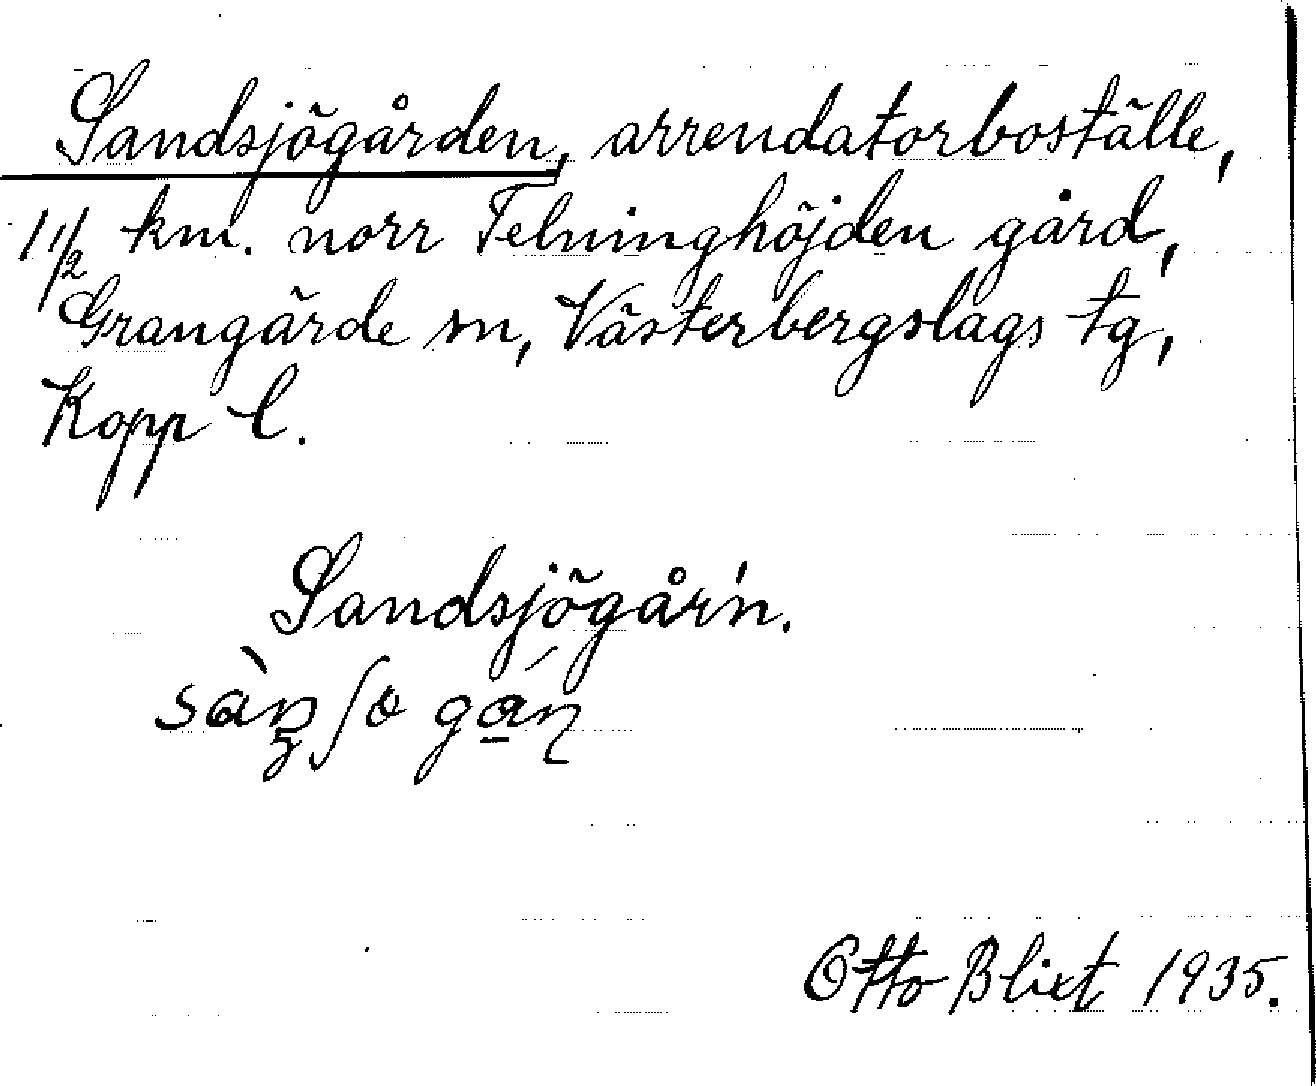 Sandsjögården, arrendatorboställe,
1 1/2 km. norr Telninghöjden gård,
Grangärde sn, Västerbergslags tg,
Kopp l.
Sandsjögår'n.
Otto Blixt 1935.